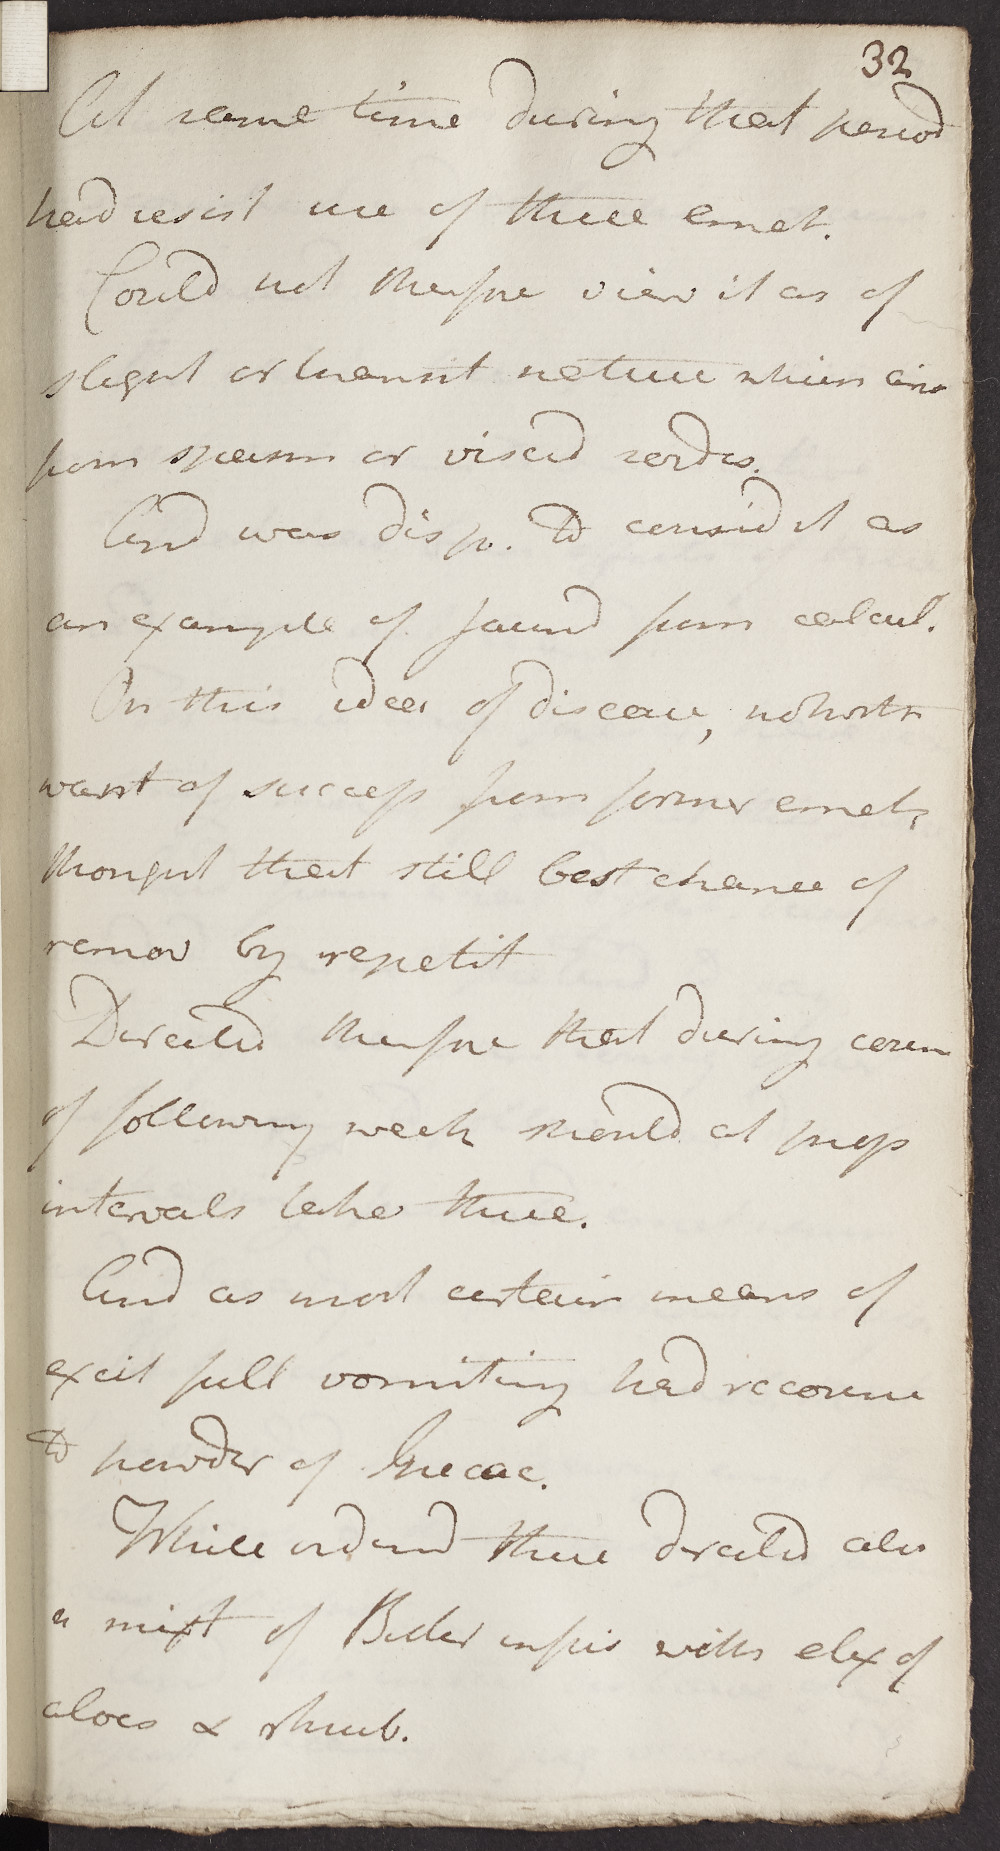 32
At same time during that period
had resist use of these emet.
Could not therfore view it as of
slight or transit nature when aris
from spasm or viscid sordes.
And was disp. to consid it as
an example of Jaund from calcul.
On this idea of disease, notwith
want of success from former emets,
thought that still best chance of
remov by repetit
Directed therfore that during cours
of following week should at prop
intervals take three.
And as most certain means of
excit full vomiting had recourse
to powder of Ipecac.
While ordered these directed also
a mixt of Bitter infus with elix of
aloes & rhub.